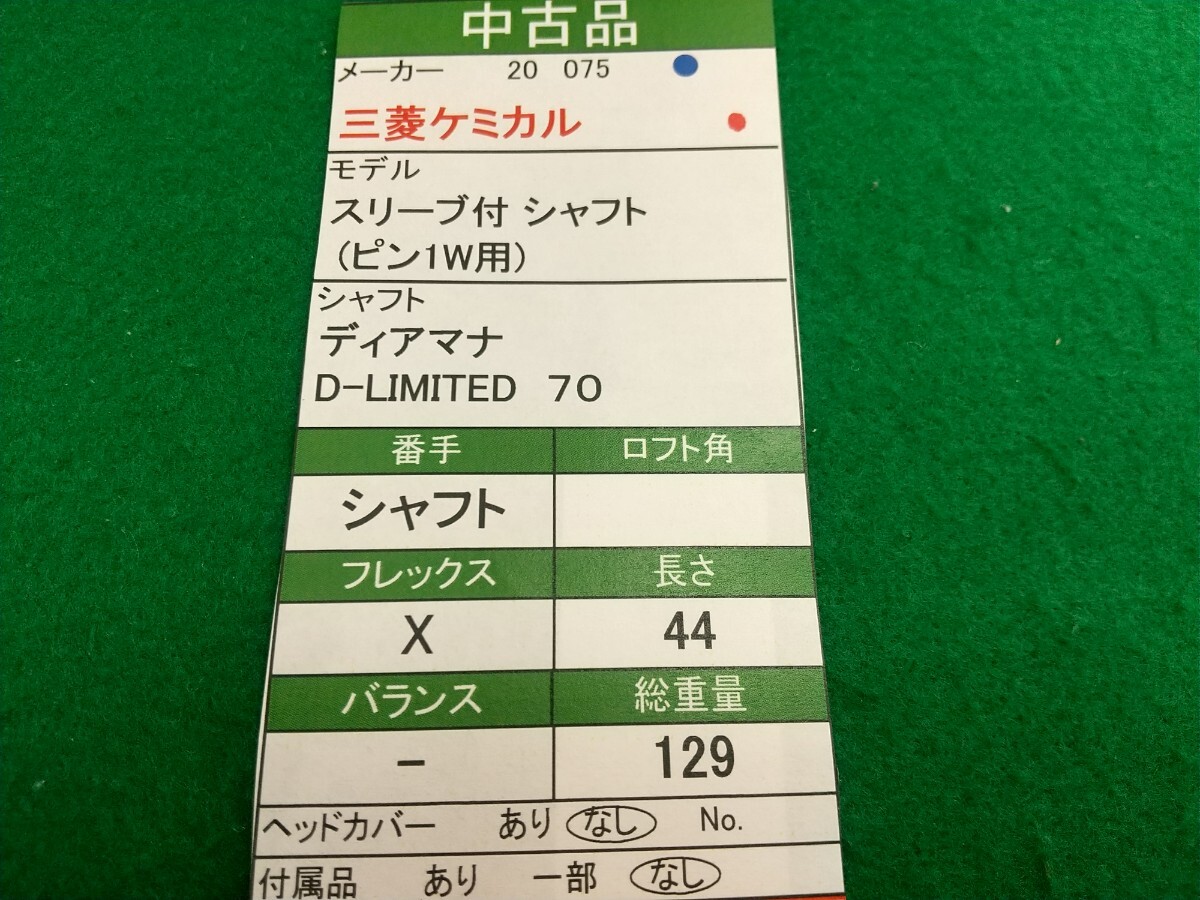 中古品
メーカー 20 075
三菱ケミカル
モデル
スリーブ付 シャフト
(ピン1W用)
シャフト
ディアマナ
D-LIMITED 70
番手 ロフト角
シャフト
フレックス 長さ
X 44
バランス 総重量
- 129
ヘッドカバー あり なし No.
付属品 あり 一部 なし